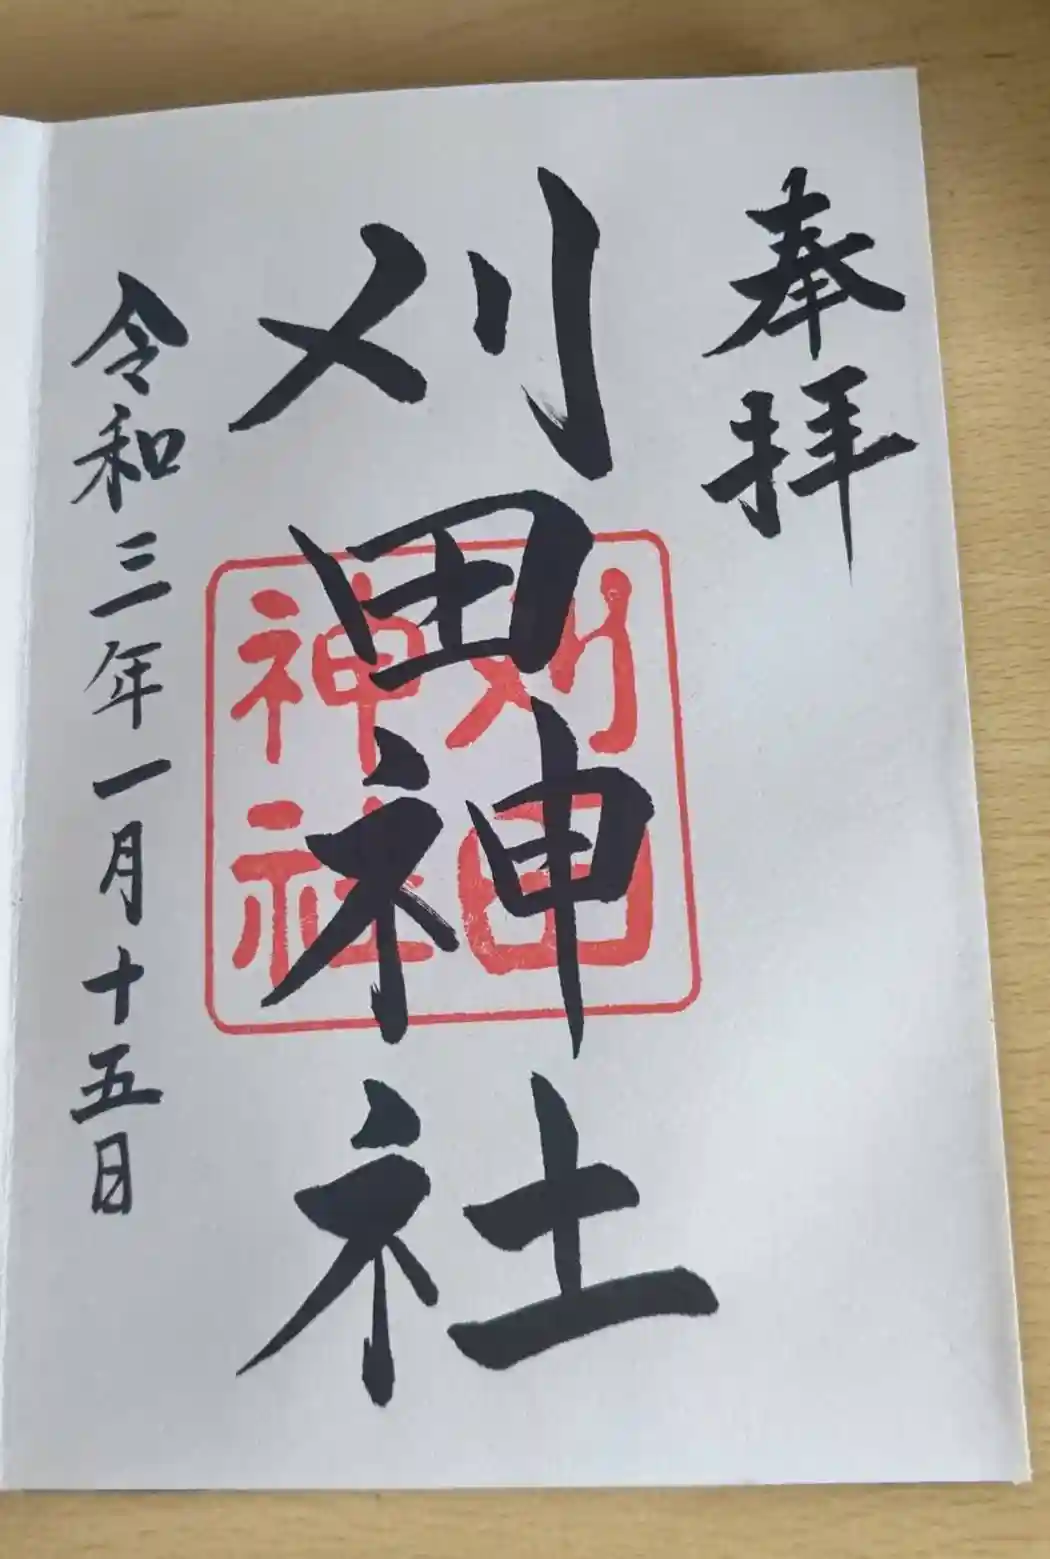 奉拝
刈田神社
刈田
神社
令和三年一月十五日